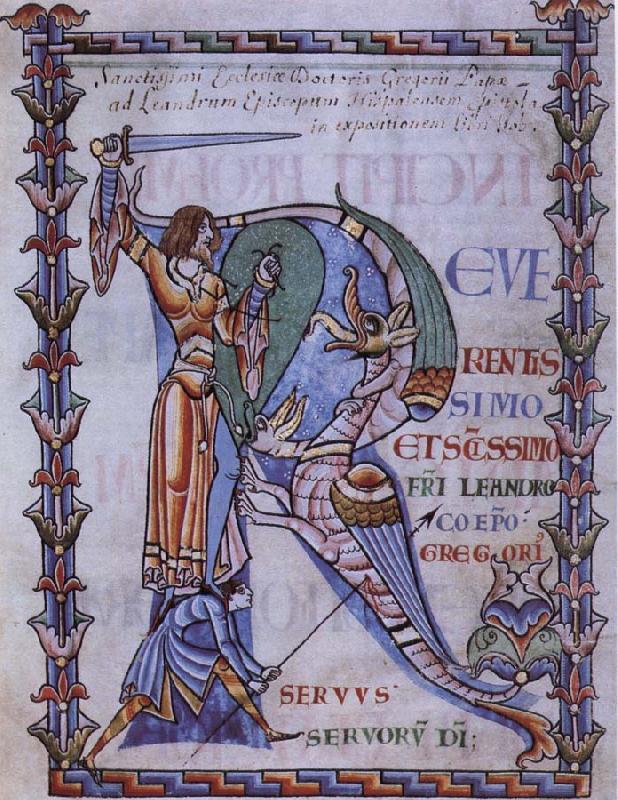 Sanctissimi Ecclesiæ Doctoris Gregorii Papæ
ad Leandrum Episcopum Hispalensem Epistola
in expositionem libri Iob.
R EVE
RENTIS
SIMO
ET SC̅ISSIMO
FR̅I LEANDRO
COEP̅O·
GREGORI'
SERVVS·
SERVORV̅ DI̅;